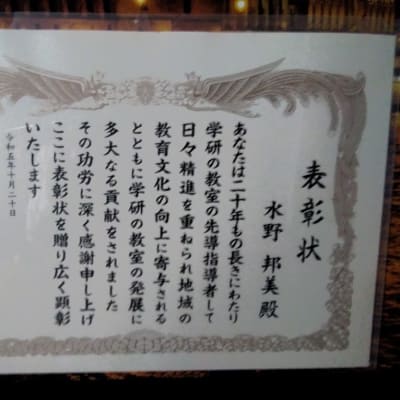 表彰状
水野 邦美 殿
あなたは二十年もの長きにわたり
学研の教室の先導指導者して
日々精進を重ねられ地域の
教育文化の向上に寄与される
とともに学研の教室の発展に
多大なる貢献をされました
その功労に深く感謝申し上げ
ここに表彰状を贈り広く顕彰
いたします
令和五年十月二十日